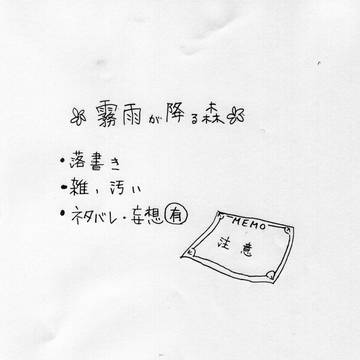 霧雨が降る森
・落書き
・雑い汚い
・ネタバレ・妄想有
MEMO
注意